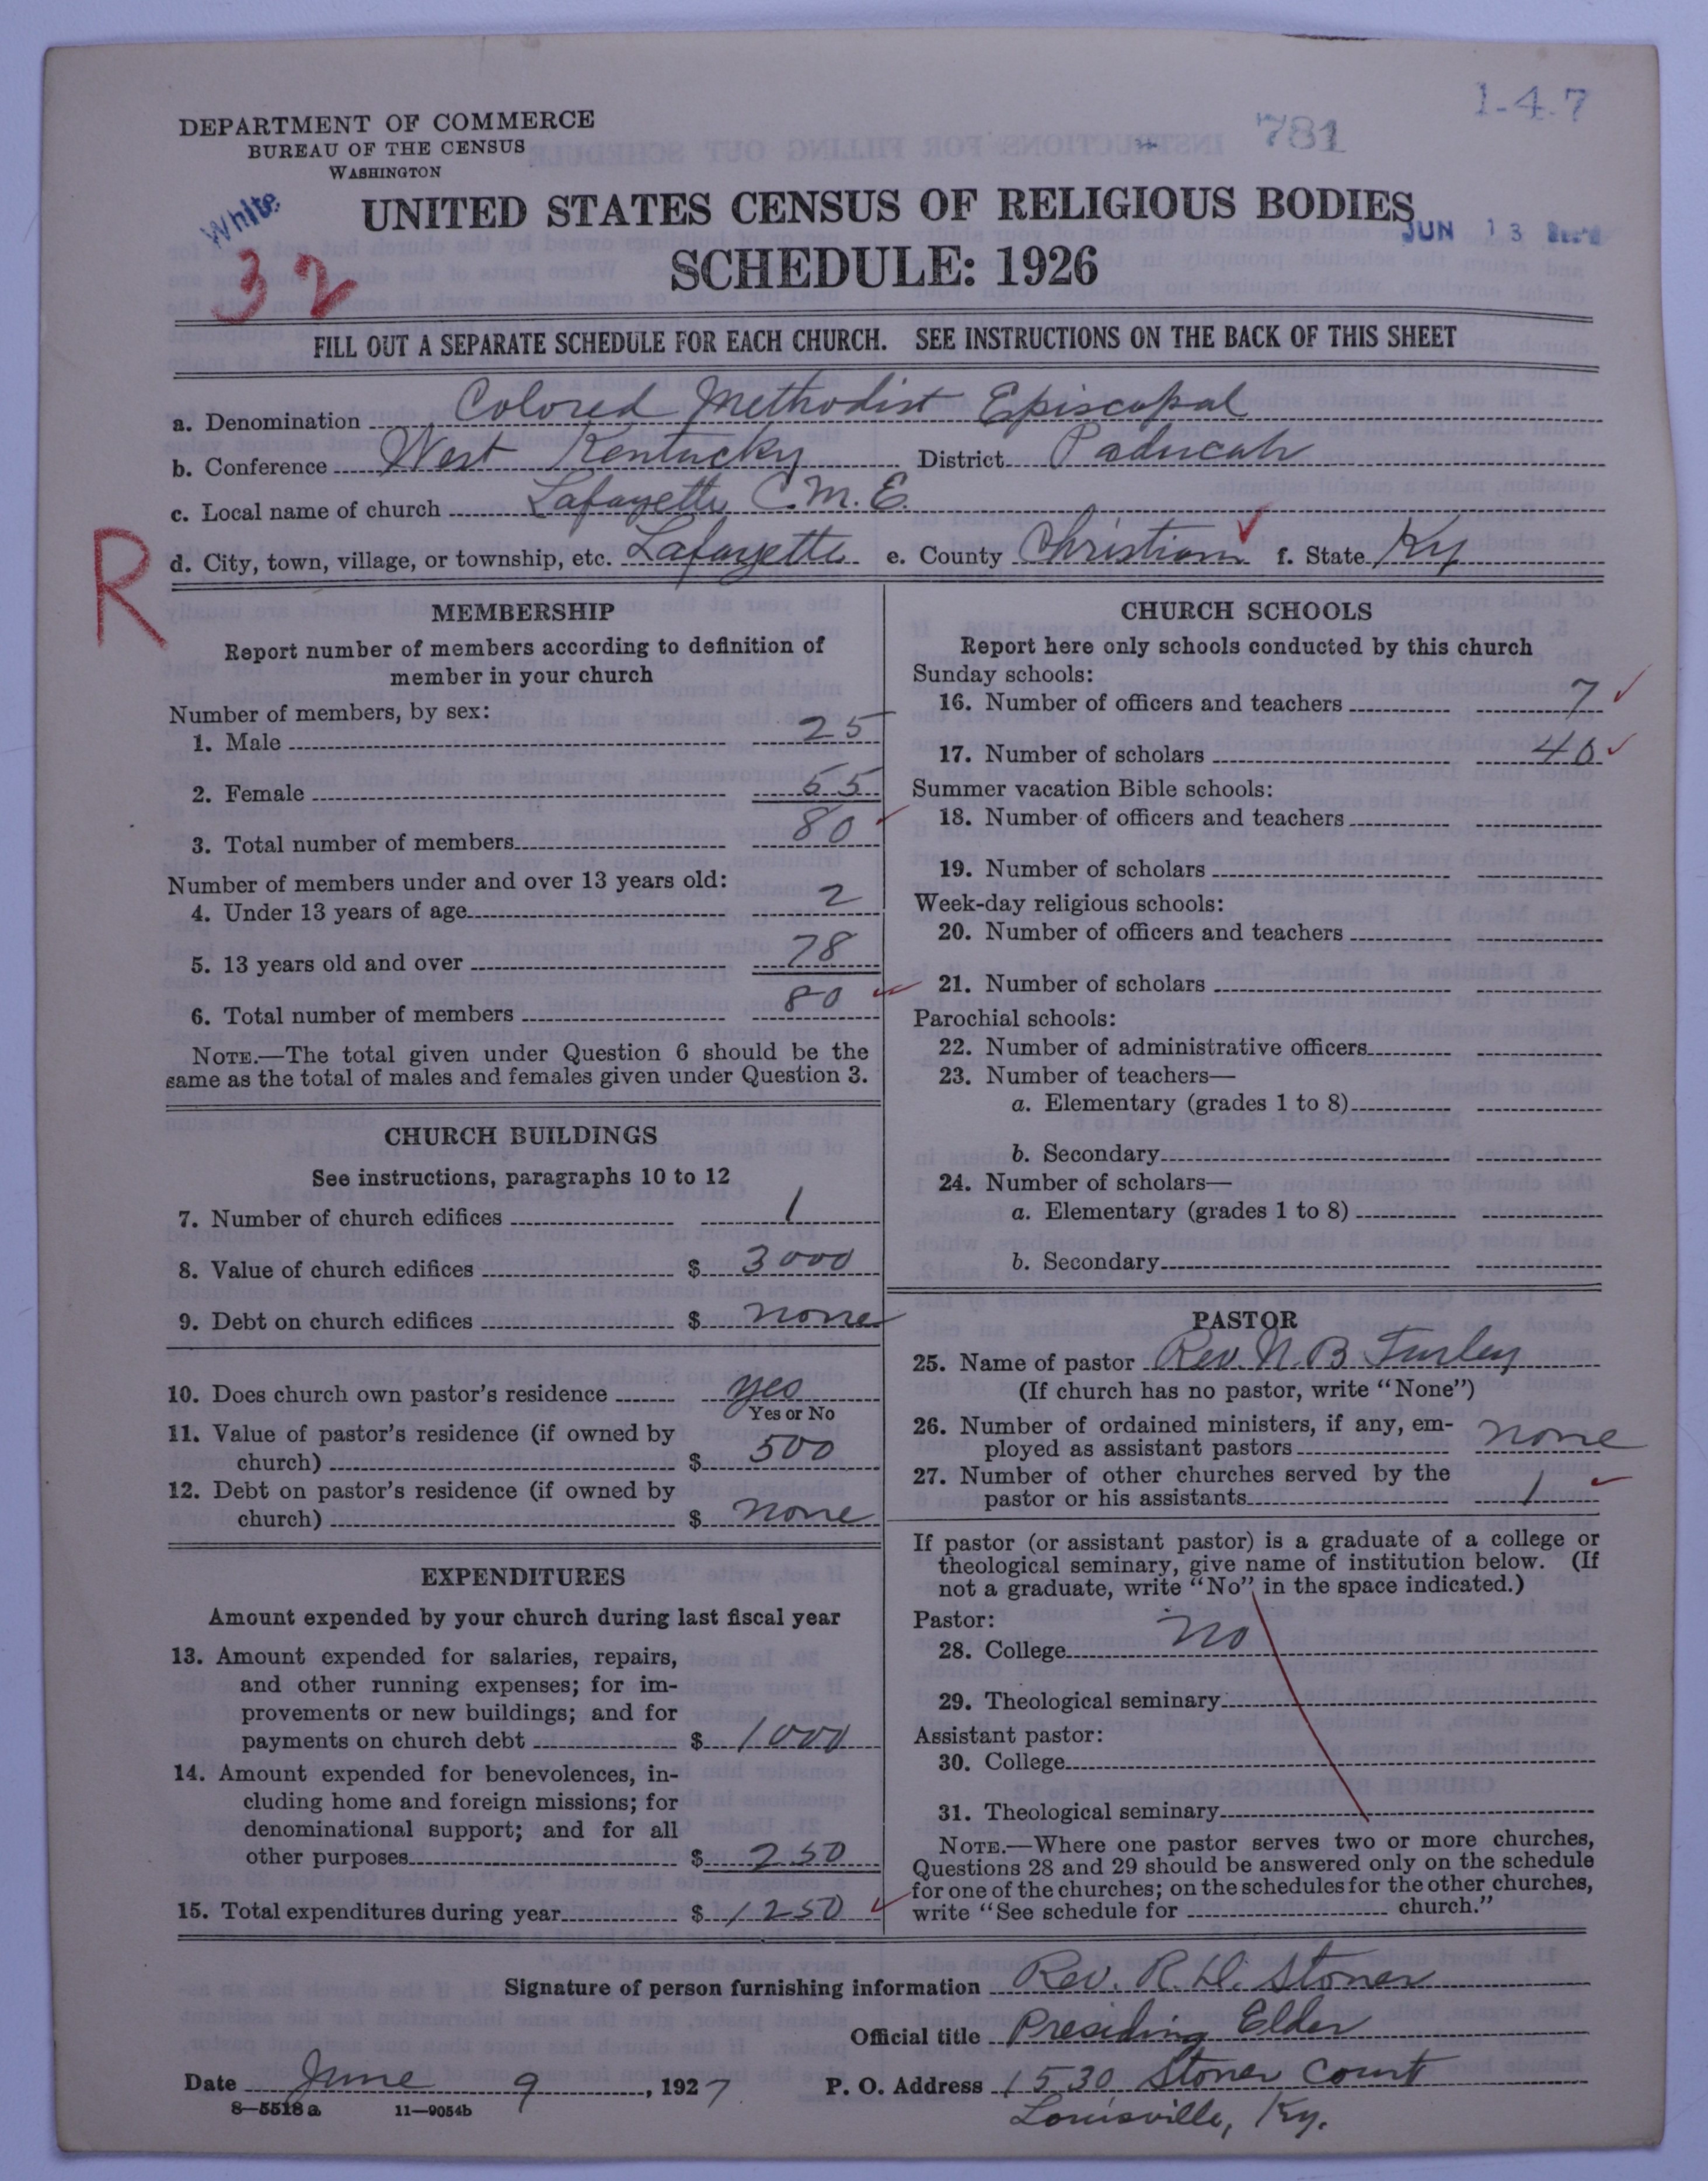 1-4-7
781
DEPARTMENT OF COMMERCE
BUREAU OF THE CENSUS
WASHINGTON
White
UNITED STATES CENSUS OF RELIGIOUS BODIES
JUN 13
32
SCHEDULE: 1926
FILL OUT A SEPARATE SCHEDULE FOR EACH CHURCH. SEE INSTRUCTIONS ON THE BACK OF THIS SHEET
a. Denomination Colored Methodist Episcopal
b. Conference West Kentucky District Paducah
c. Local name of church Lafayette C.M.E.
R
d. City, town, village, or township, etc. Lafayette e. County Christian f. State Ky
MEMBERSHIP
Report number of members according to definition of
member in your church
Number of members, by sex:
1. Male 25
2. Female 55
3. Total number of members 80
Number of members under and over 13 years old:
4. Under 13 years of age 2
5. 13 years old and over 78
6. Total number of members 80
NOTE.—The total given under Question 6 should be the
same as the total of males and females given under Question 3.
CHURCH BUILDINGS
See instructions, paragraphs 10 to 12
7. Number of church edifices 1
8. Value of church edifices $ 3000
9. Debt on church edifices $ none
10. Does church own pastor's residence yes
Yes or No
11. Value of pastor's residence (if owned by
church) $ 500
12. Debt on pastor's residence (if owned by
church) $ none
EXPENDITURES
Amount expended by your church during last fiscal year
13. Amount expended for salaries, repairs,
and other running expenses; for im-
provements or new buildings; and for
payments on church debt $ 1000
14. Amount expended for benevolences, in-
cluding home and foreign missions; for
denominational support; and for all
other purposes $ 250
15. Total expenditures during year $ 1250
CHURCH SCHOOLS
Report here only schools conducted by this church
Sunday schools:
16. Number of officers and teachers 7
17. Number of scholars 40
Summer vacation Bible schools:
18. Number of officers and teachers
19. Number of scholars
Week-day religious schools:
20. Number of officers and teachers
21. Number of scholars
Parochial schools:
22. Number of administrative officers
23. Number of teachers—
a. Elementary (grades 1 to 8)
b. Secondary
24. Number of scholars—
a. Elementary (grades 1 to 8)
b. Secondary
PASTOR
25. Name of pastor Rev. N. B Turley
(If church has no pastor, write "None")
26. Number of ordained ministers, if any, em-
ployed as assistant pastors none
27. Number of other churches served by the
pastor or his assistants 1
If pastor (or assistant pastor) is a graduate of a college or
theological seminary, give name of institution below. (If
not a graduate, write "No" in the space indicated.)
Pastor:
28. College no
29. Theological seminary
Assistant pastor:
30. College
31. Theological seminary
NOTE.—Where one pastor serves two or more churches,
Questions 28 and 29 should be answered only on the schedule
for one of the churches; on the schedules for the other churches,
write "See schedule for church."
Signature of person furnishing information Rev. R. H. Stoner
Official title Presiding Elder
Date June 9, 1927 P. O. Address 1530 Stoner Court
8—5518a 11—9054b
Louisville, Ky.